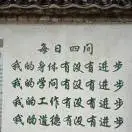 每日四问
我的身体有没有进步
我的学问有没有进步
我的工作有没有进步
我的道德有没有进步